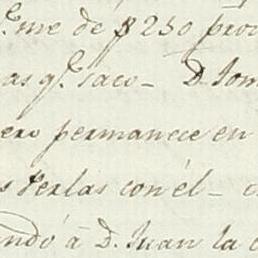 q.e me de $250 prov
as q.e saco _ D. Tom
ero permanece en
s Perlas con él _ 
ndó á D. Juan la c